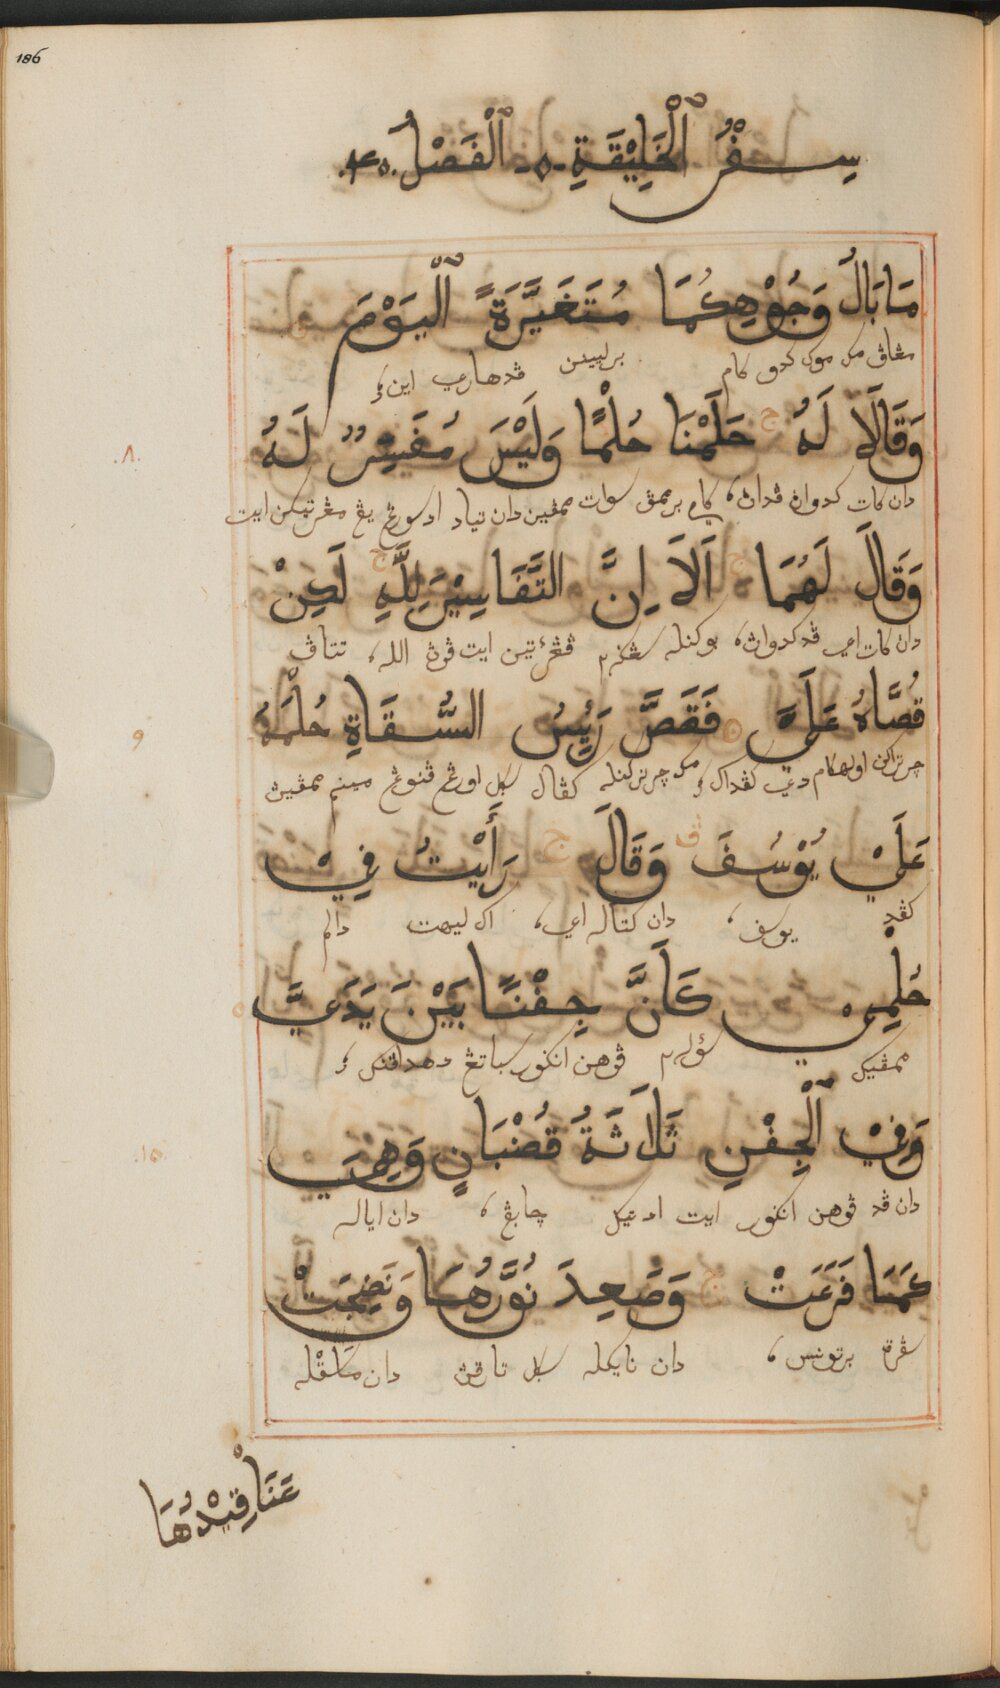 186
سِفْرُ ٱلْخَلِيْقَةِ ٱلْفَصْلُ ۴۰
مَا بَالُ وَجُوْهِكُمَا مُتَغَيَّرَةً ٱلْيَوْمَ
مڠاڤ مک موک کدو کام برلیینن ڤد هاري این
وَقَالَا لَهُ حَلَمْنَا حُلْمًا وَلَيْسَ مُفَسِّرٌ لَهُ
۸
دان کات کدوان ڤدان، کامي برممڤي سوات ممڤين دان تياد اد سورڠ يڠ مڠرتيکن ايت
وَقَالَ لَهُمَا اَلَا اِنَّ التَّفَاسِيْرَ لِلَّهِ لَكِنْ
دان کات اي ڤد کدوان، بوکنله ايت ڤون الله، تتاڤ
قُصَّاهُ عَلَيَّ فَقَصَّ رَئِيْسُ السُّقَاةِ حُلْمَهُ
۹
چرتراکن اولهکام دي کڤداک مک چرتراکنله کڤال سکل اورڠ ڤنوڠ مينم ممڤين
عَلَيْ يُوْسُفَ وَقَالَ رَأَيْتُ فِيْ
کڤد يوسف، دان کتاله اي، اک ليهت دالم
حُلْمِيْ كَاَنَّ جِفْنًا بَيْنَ يَدَيَّ
ممڤيک سؤله٢ ڤوهن اڠکور سباتڠ دهداڤنک
وَفِيْ ٱلْجِفْنِ ثَلَاثَةُ قُضْبَانٍ وَهِيَ
۱۰
دان ڤد ڤوهن اڠکور ايت اد تيݢ چابڠ، دان اياله
كَمَا فَرَعَتْ وَصَعِدَ نُوَّرُهَا وَنَضِجَتْ
سڤرة برتونس، دان نايکله سکل تارڤن دان ماسقله
عَنَاقِيْدُهَا